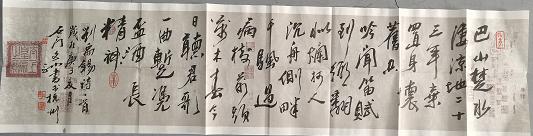 巴山楚水
淒涼地二十
三年棄
置身懷
舊空
吟聞笛賦
到鄉翻
似爛柯人
沉舟側畔
千帆過
病樹前頭
萬木春今
日聽君歌
一曲暫憑
盃酒長
精神
劉禹錫詩一首
書於杭州